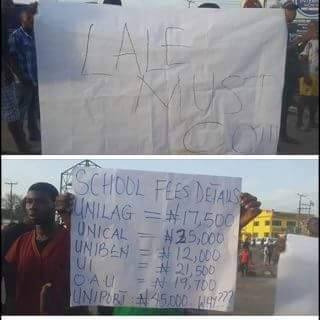 LALE
MUST
GO
SCHOOL FEES DETAILS
UNILAG = ₦17,500
UNICAL = ₦25,000
UNIBEN = ₦12,000
UI = ₦21,500
OAU = ₦19,700
UNIPORT: ₦45,000. WHY???